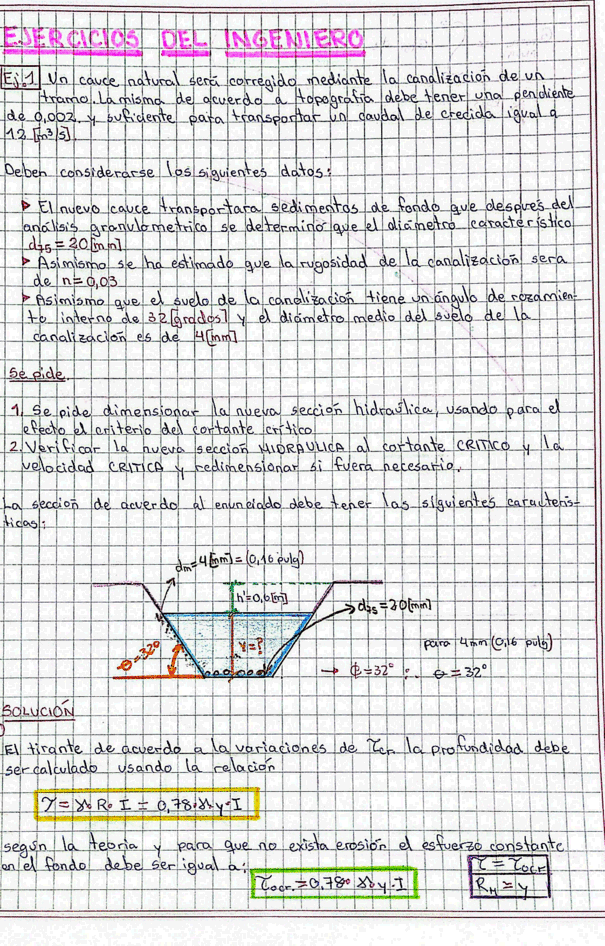 EJERCICIOS DEL INGENIERO
Ej.1 Un cauce natural será corregido mediante la canalización de un
tramo. La misma de acuerdo a topografía debe tener una pendiente
de 0,002 y suficiente para transportar un caudal de crecida igual a
12 [m³/s].
Deben considerarse los siguientes datos:
▸ El nuevo cauce transportara sedimentos de fondo que despues del
análisis granulometrico se determinó que el diámetro característico
d₇₅ = 20 [mm]
▸ Asimismo se ha estimado que la rugosidad de la canalización sera
de n = 0,03
▸ Asimismo que el suelo de la canalización tiene un ángulo de rozamien-
to interno de 32 [grados] y el diámetro medio del suelo de la
canalización es de 4 [mm]
Se pide.
1. Se pide dimensionar la nueva sección hidraúlica, usando para el
efecto el criterio del cortante crítico
2. Verificar la nueva sección HIDRAULICA al cortante CRITICO y la
velocidad CRITICA y redimensionar si fuera necesario.
La sección de acuerdo al enunciado debe tener las siguientes caracterís-
ticas:
dm = 4 [mm] = (0,16 pulg)
h' = 0,6 [m]
d₇₅ = 20 [mm]
θ = 32°
y = ?
para 4 mm (0,16 pulg)
→ ϕ = 32° ∴ θ = 32°
SOLUCIÓN
El tirante de acuerdo a la variaciones de τcr la profundidad debe
ser calculado usando la relación
τ = γ₀ R₀ I = 0,78·γ₀ y·I
según la teoria y para que no exista erosión el esfuerzo constante
en el fondo debe ser igual a:
τocr. = 0,78·γ₀ y·I
τ = τocr
R_H ≃ y